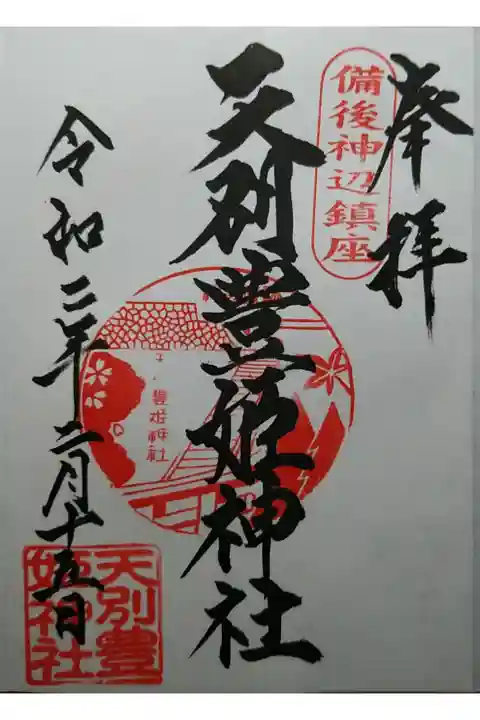 奉拝
備後神辺鎮座
天別豊姫神社
豊姫神社
令和二年二月十五日
天別豊
姫神社